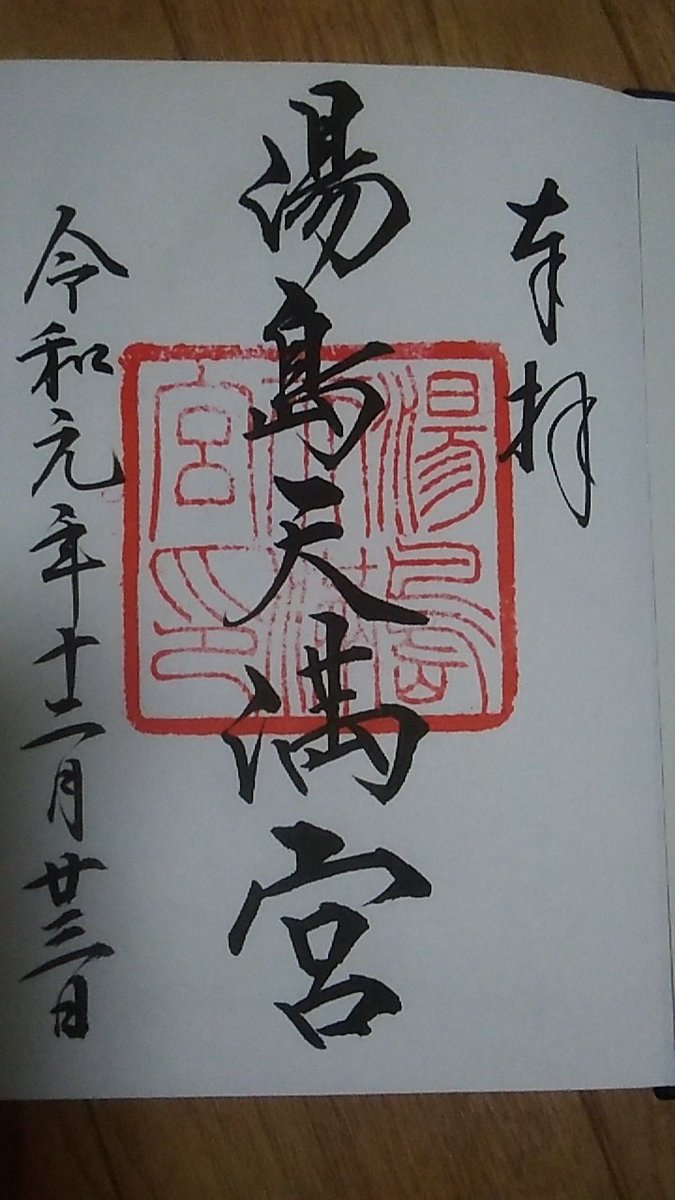 奉拝
湯島天満宮
湯島
天満
宮印
令和元年十二月廿三日